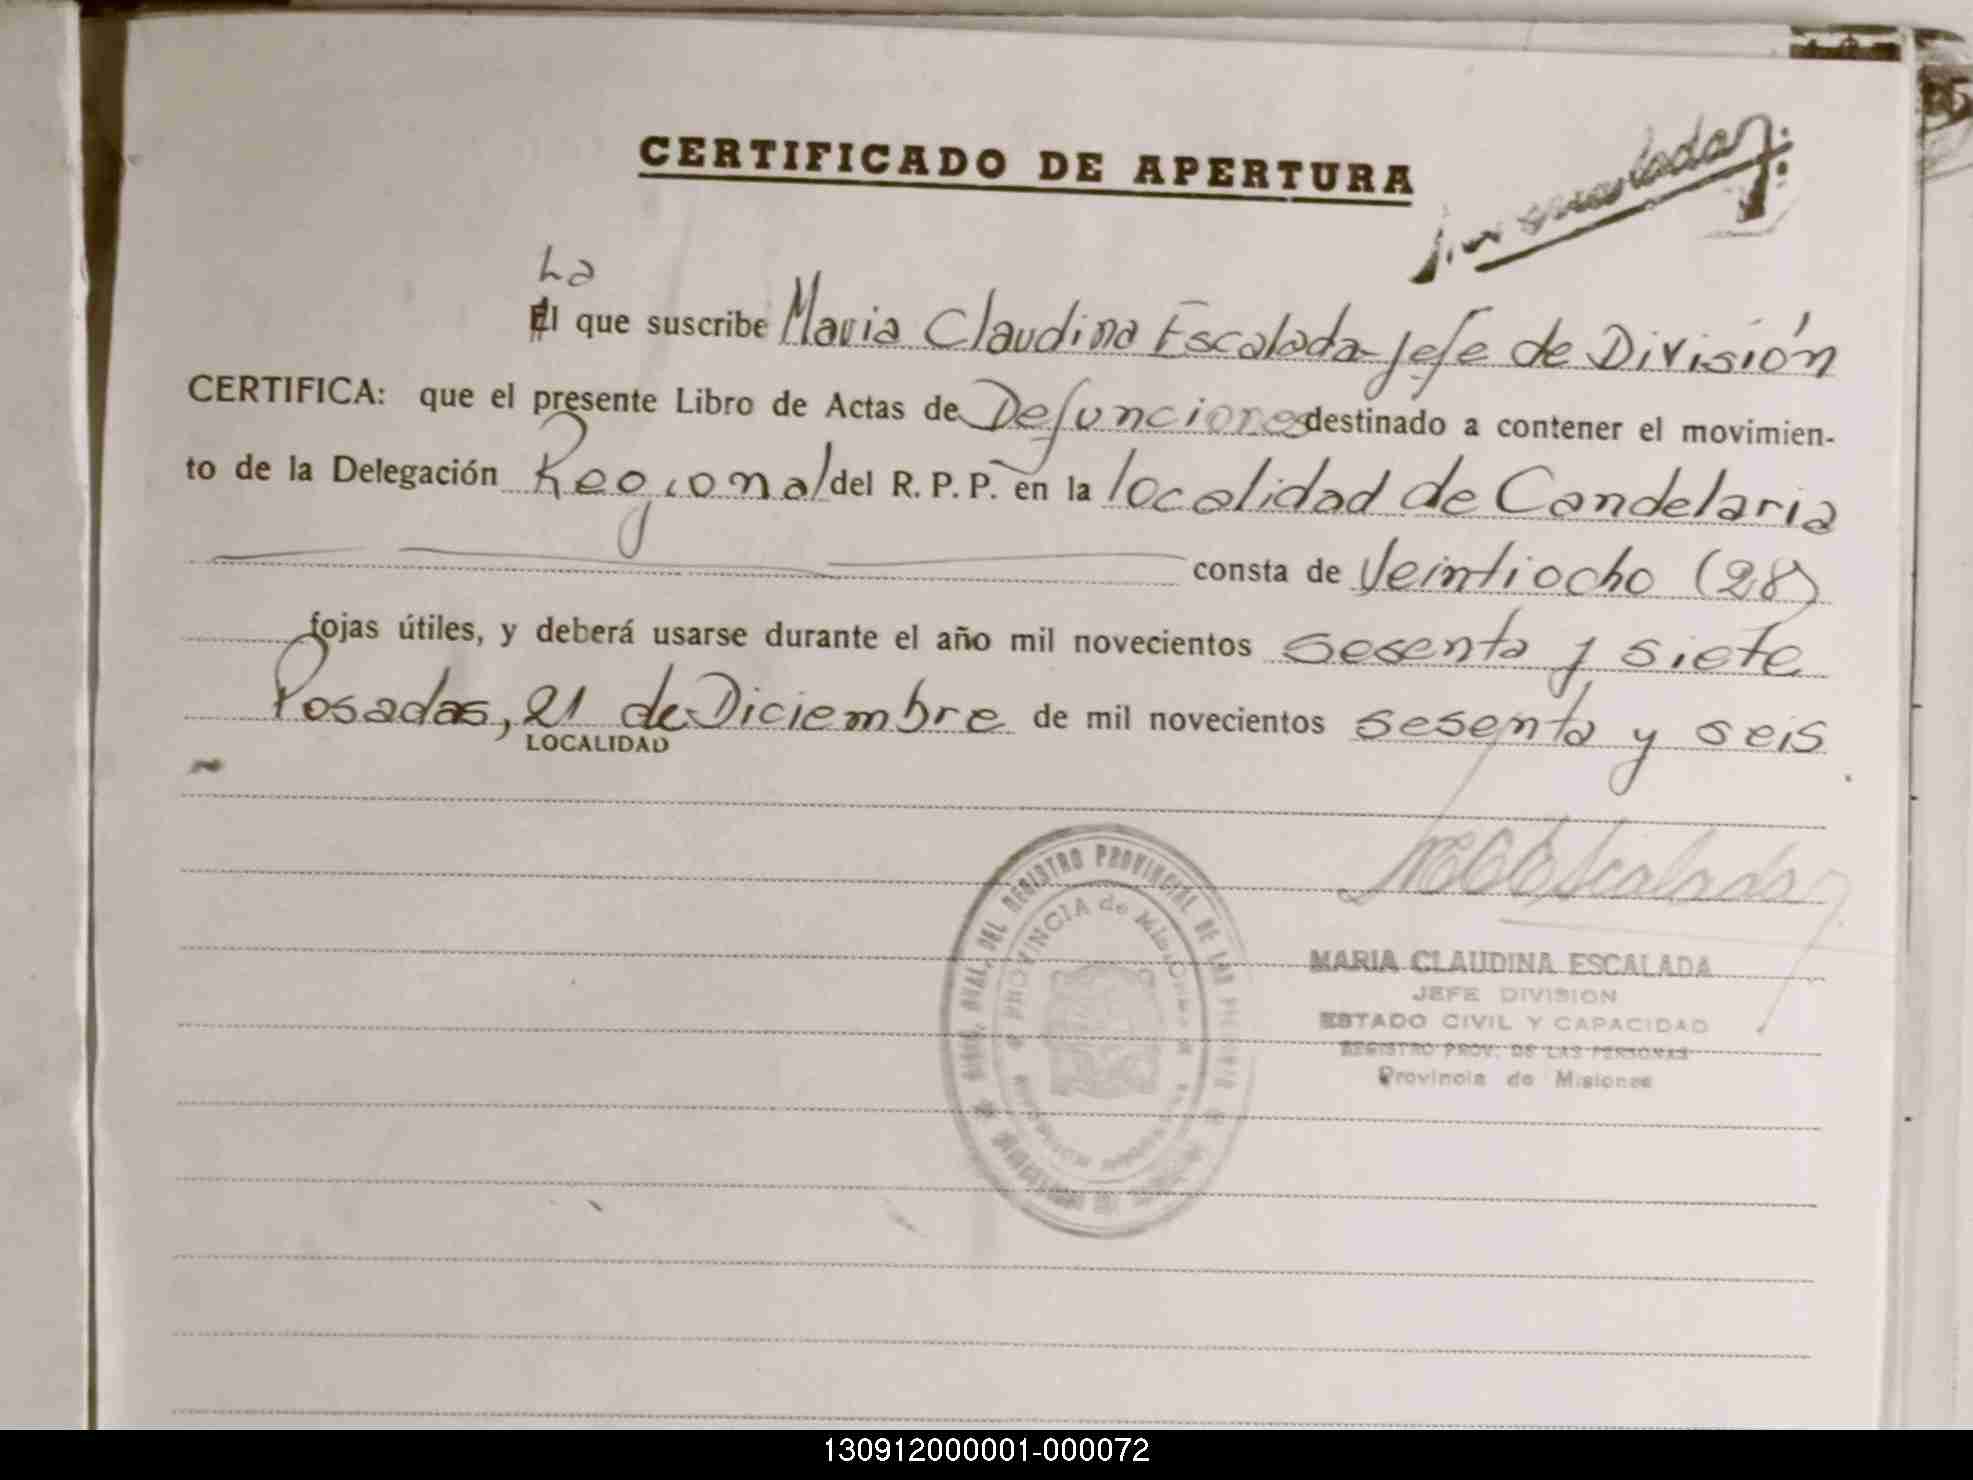 CERTIFICADO DE APERTURA
La
El que suscribe Maria Claudina Escalada Jefe de División
CERTIFICA: que el presente Libro de Actas de Defunciones destinado a contener el movimien-
to de la Delegación Regional del R. P. P. en la localidad de Candelaria
consta de Veintiocho (28)
fojas útiles, y deberá usarse durante el año mil novecientos sesenta y siete
Posadas, 21 de Diciembre de mil novecientos sesenta y seis
LOCALIDAD
MCEscalada
MARIA CLAUDINA ESCALADA
JEFE DIVISION
ESTADO CIVIL Y CAPACIDAD
REGISTRO PROV. DE LAS PERSONAS
Provincia de Misiones
DEL REGISTRO PROVINCIAL DE LAS
PROVINCIA de Misiones
130912000001-000072